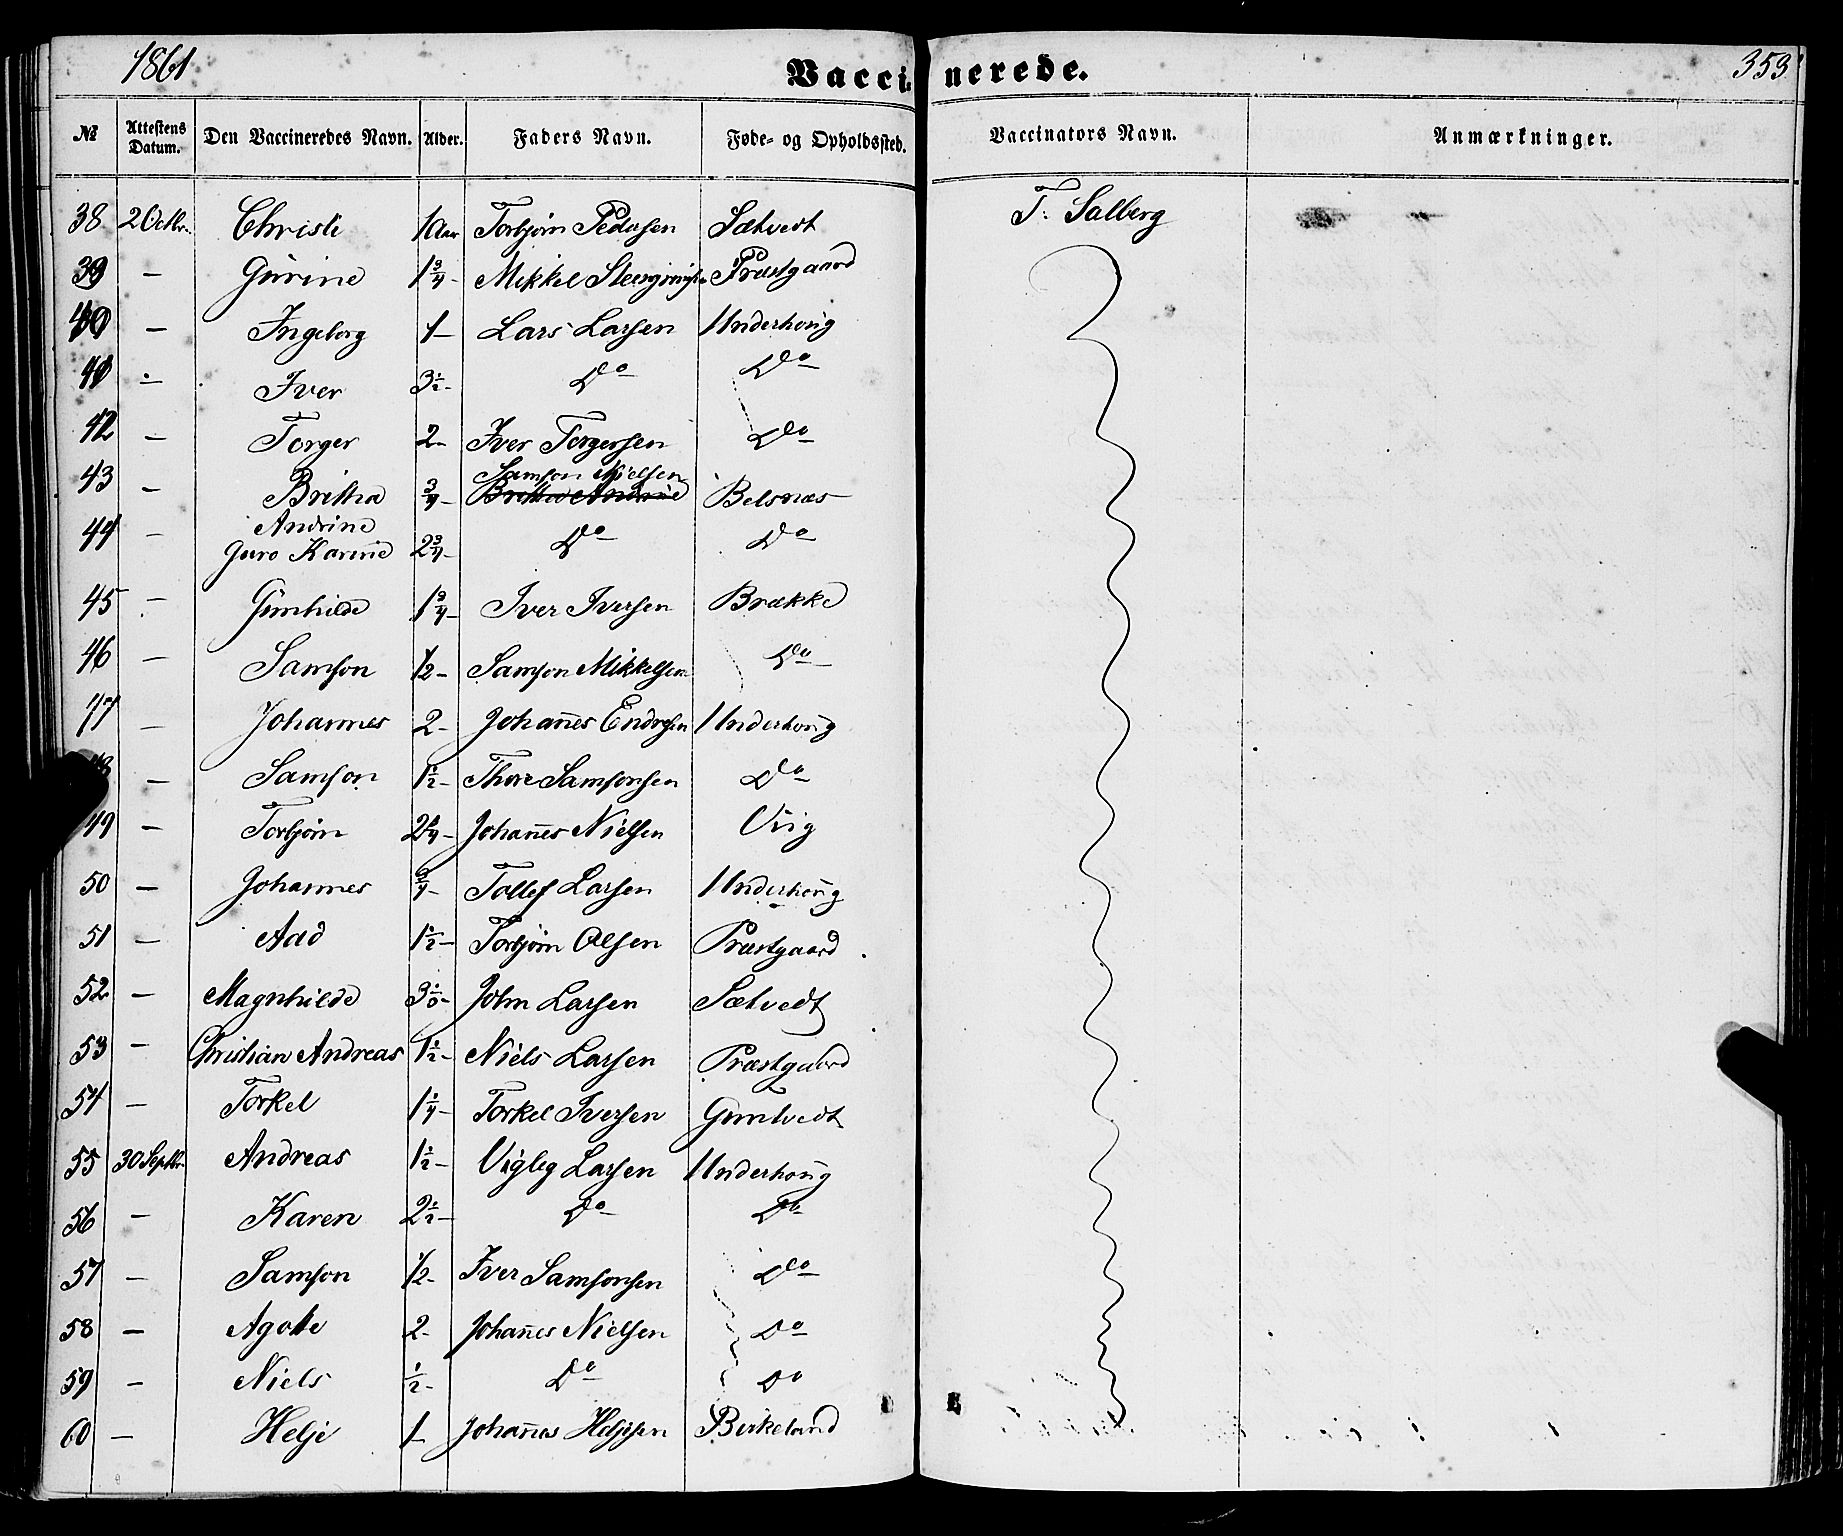 1861 Vaccinerede. 353
№ Attestens Datum. Den Vaccineredes Navn. Alder. Faders Navn. Føde- og Opholdssted. Vaccinators Navn. Anmærkninger.
38 2 Octbr. Christi 1 Aar Torbjørn Pedersen Sætvedt T. Salberg
39 — Gurine 1 3/4 - Mikkel Præstgaard
40 — Ingeborg 1 — Lars Larsen Underhoug
41 — Iver 3 1/2 - Do Do
42 — Torger 2 - Iver Torgersen Do
43 — Britha Andrine 3/4 - Samson Nielsen Belsnæs
44 — Guro Karine 2 3/4 - Do Do
45 — Gunhilde 1 3/4 - Iver Iversen Brække
46 — Samson 1/2 - Samson Mikkelsen Do
47 — Johannes 2 - Johañes Endresen Underhoug
48 — Samson 1 1/2 - Thore Samsonsen Do
49 — Torbjørn 2 1/4 - Johañes Nielsen Viig
50 — Johannes 3/4 - Tollef Larsen Underhoug
51 — Aad 1 1/2 - Torbjørn Olsen Præstgaard
52 — Magnhilde John Larsen Sætvedt
53 — Christian Andreas 1 1/2 - Niels Larsen Præstgaard
54 — Torkel 1 1/4 - Torkel Iversen Gimtvedt
55 30 Septbr. Andreas 1 1/2 - Vigleg Larsen Underhoug
56 — Karen 2 1/2 - Do Do
57 — Samson 1/2 - Iver Samsonsen Do
58 — Agote 2 - Johañes Nielsen Do
59 — Niels 1/2 - Do Do
60 — Helje 1 - Johañes Heljesen Birkeland